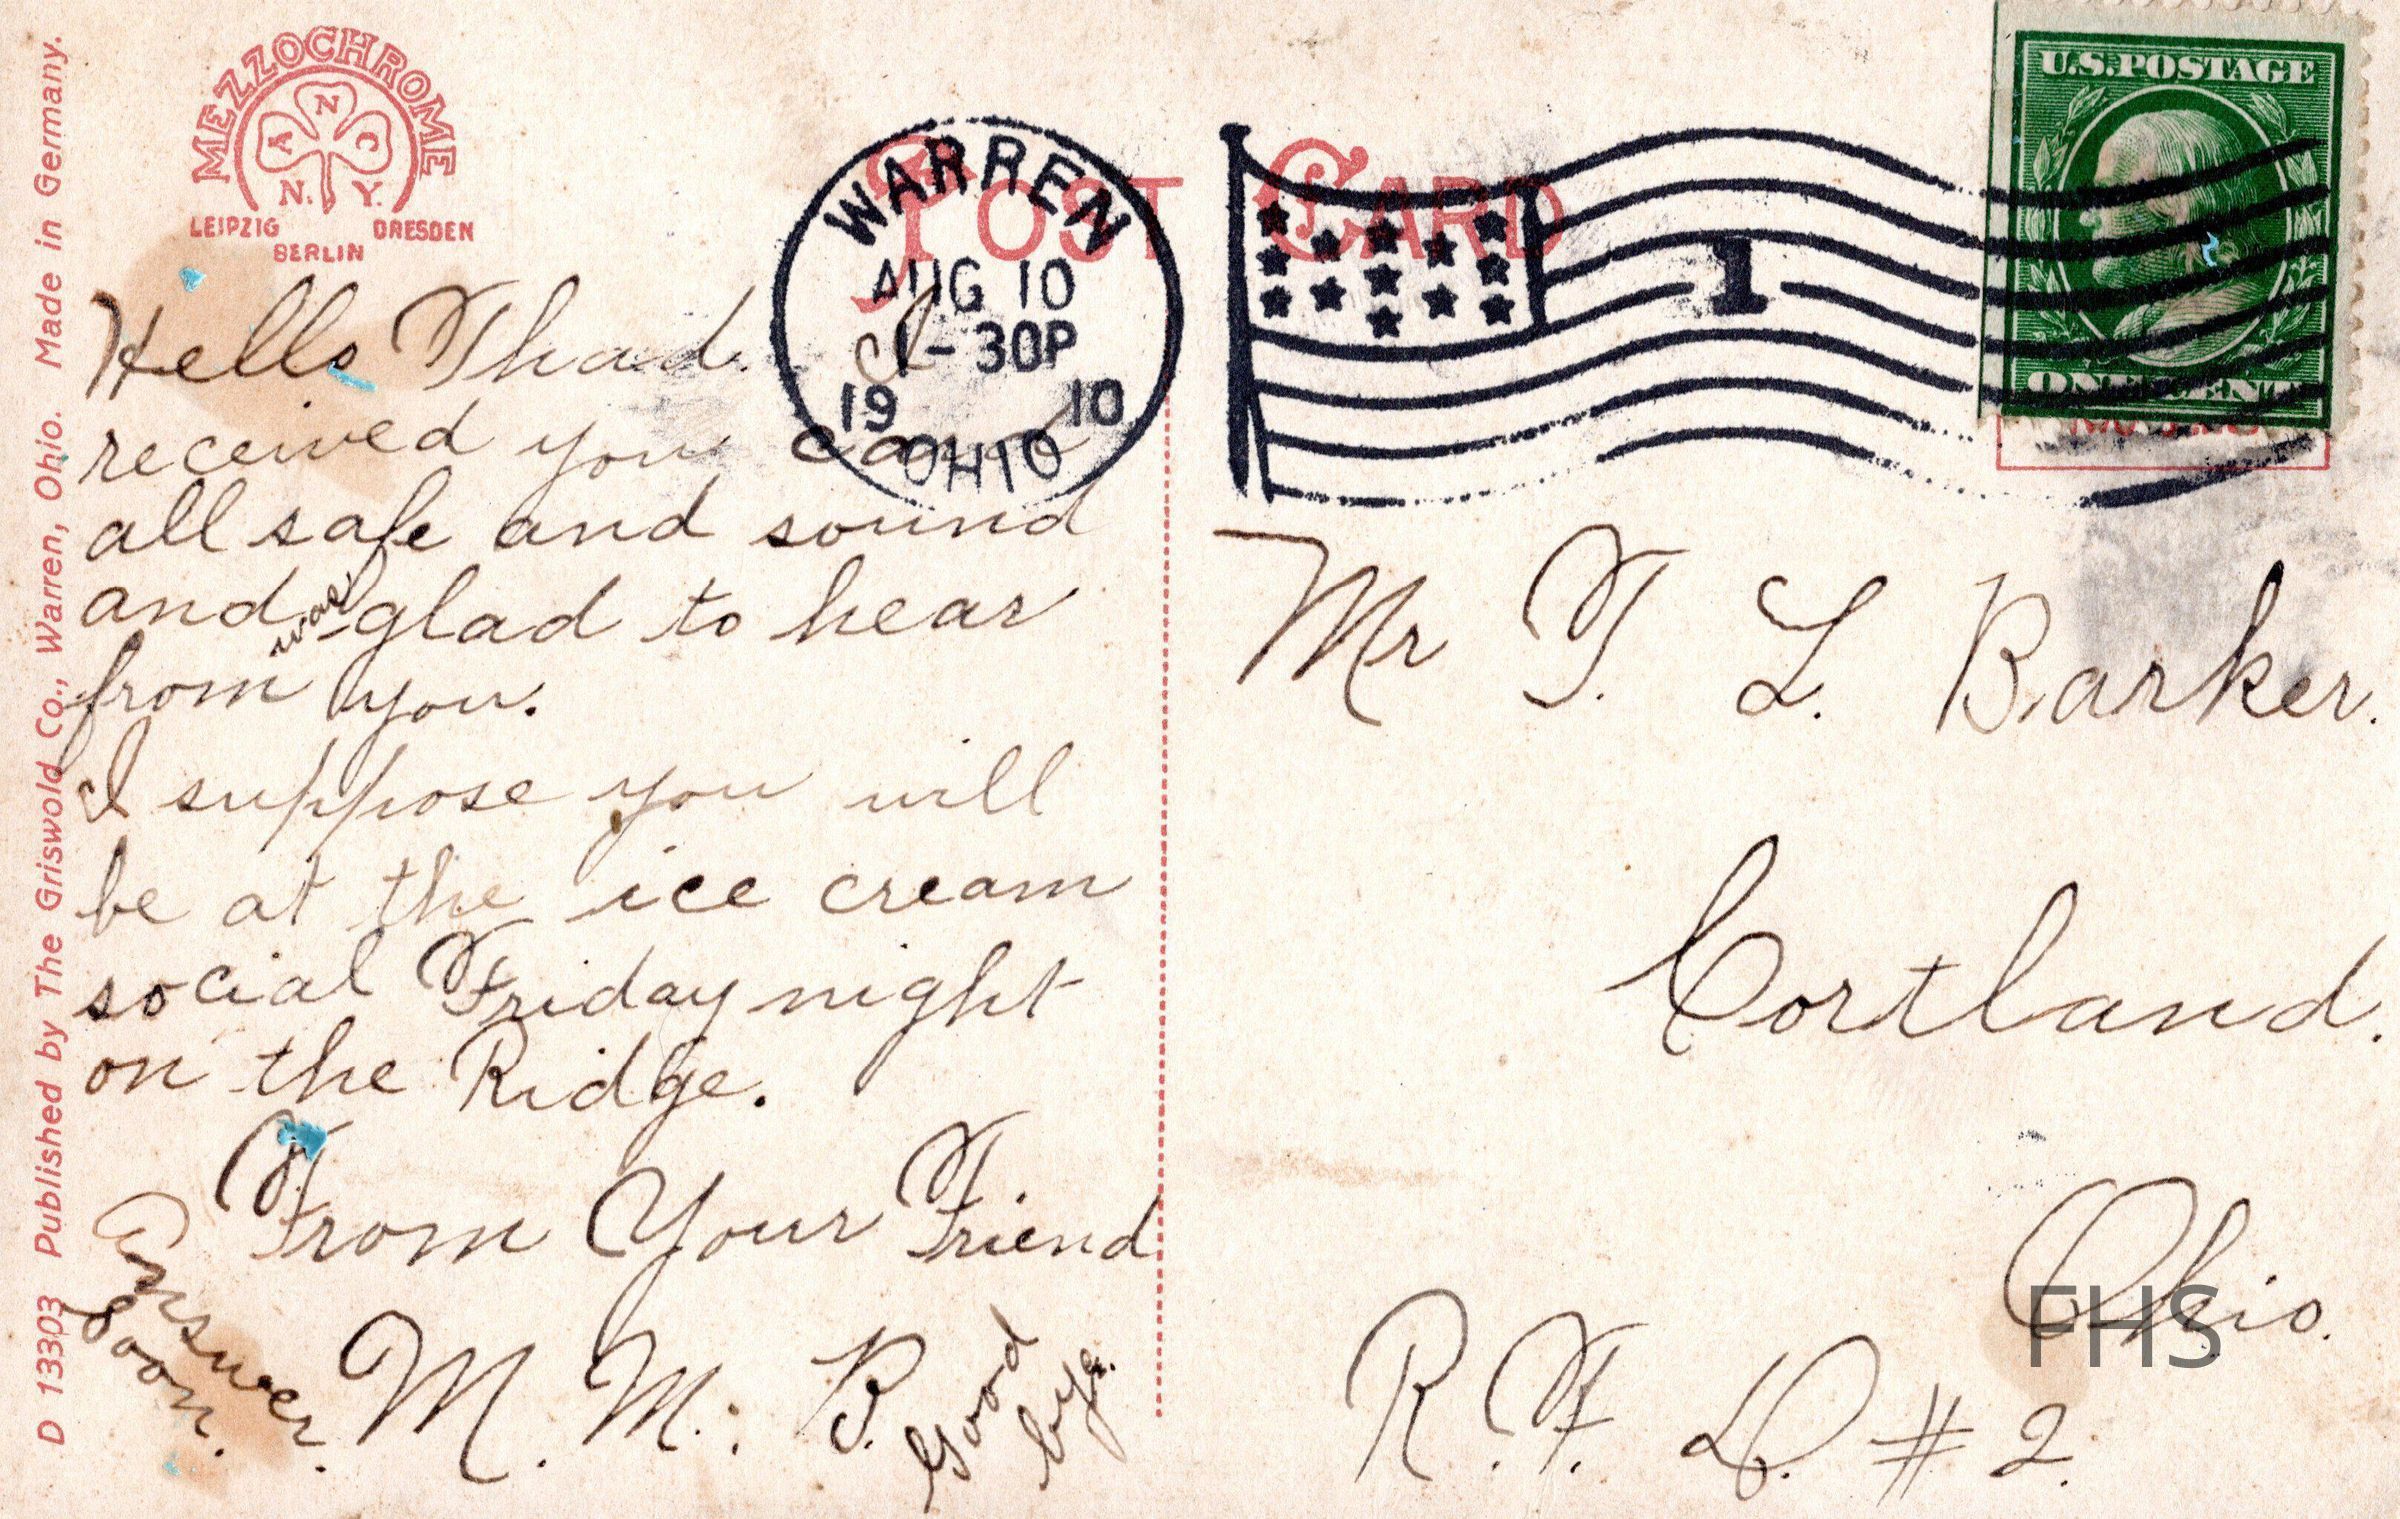 D 13303 Published by The Griswold Co., Warren, Ohio. Made in Germany.
MEZZOCHROME
A N C
N. Y.
LEIPZIG DRESDEN
BERLIN
POST CARD
WARREN
AUG 10
1-30P
19 10
OHIO
1
U.S. POSTAGE
ONE CENT
Hello Thad. I
received you card
all safe and sound
and was glad to hear
from you.
I suppose you will
be at the ice cream
social Friday night
on the Ridge.
From Your Friend
M. M. B.
Answer
Soon.
Good
bye.
Mr T. L. Barker.
Cortland.
Ohio.
R. F. D. # 2.
FHS